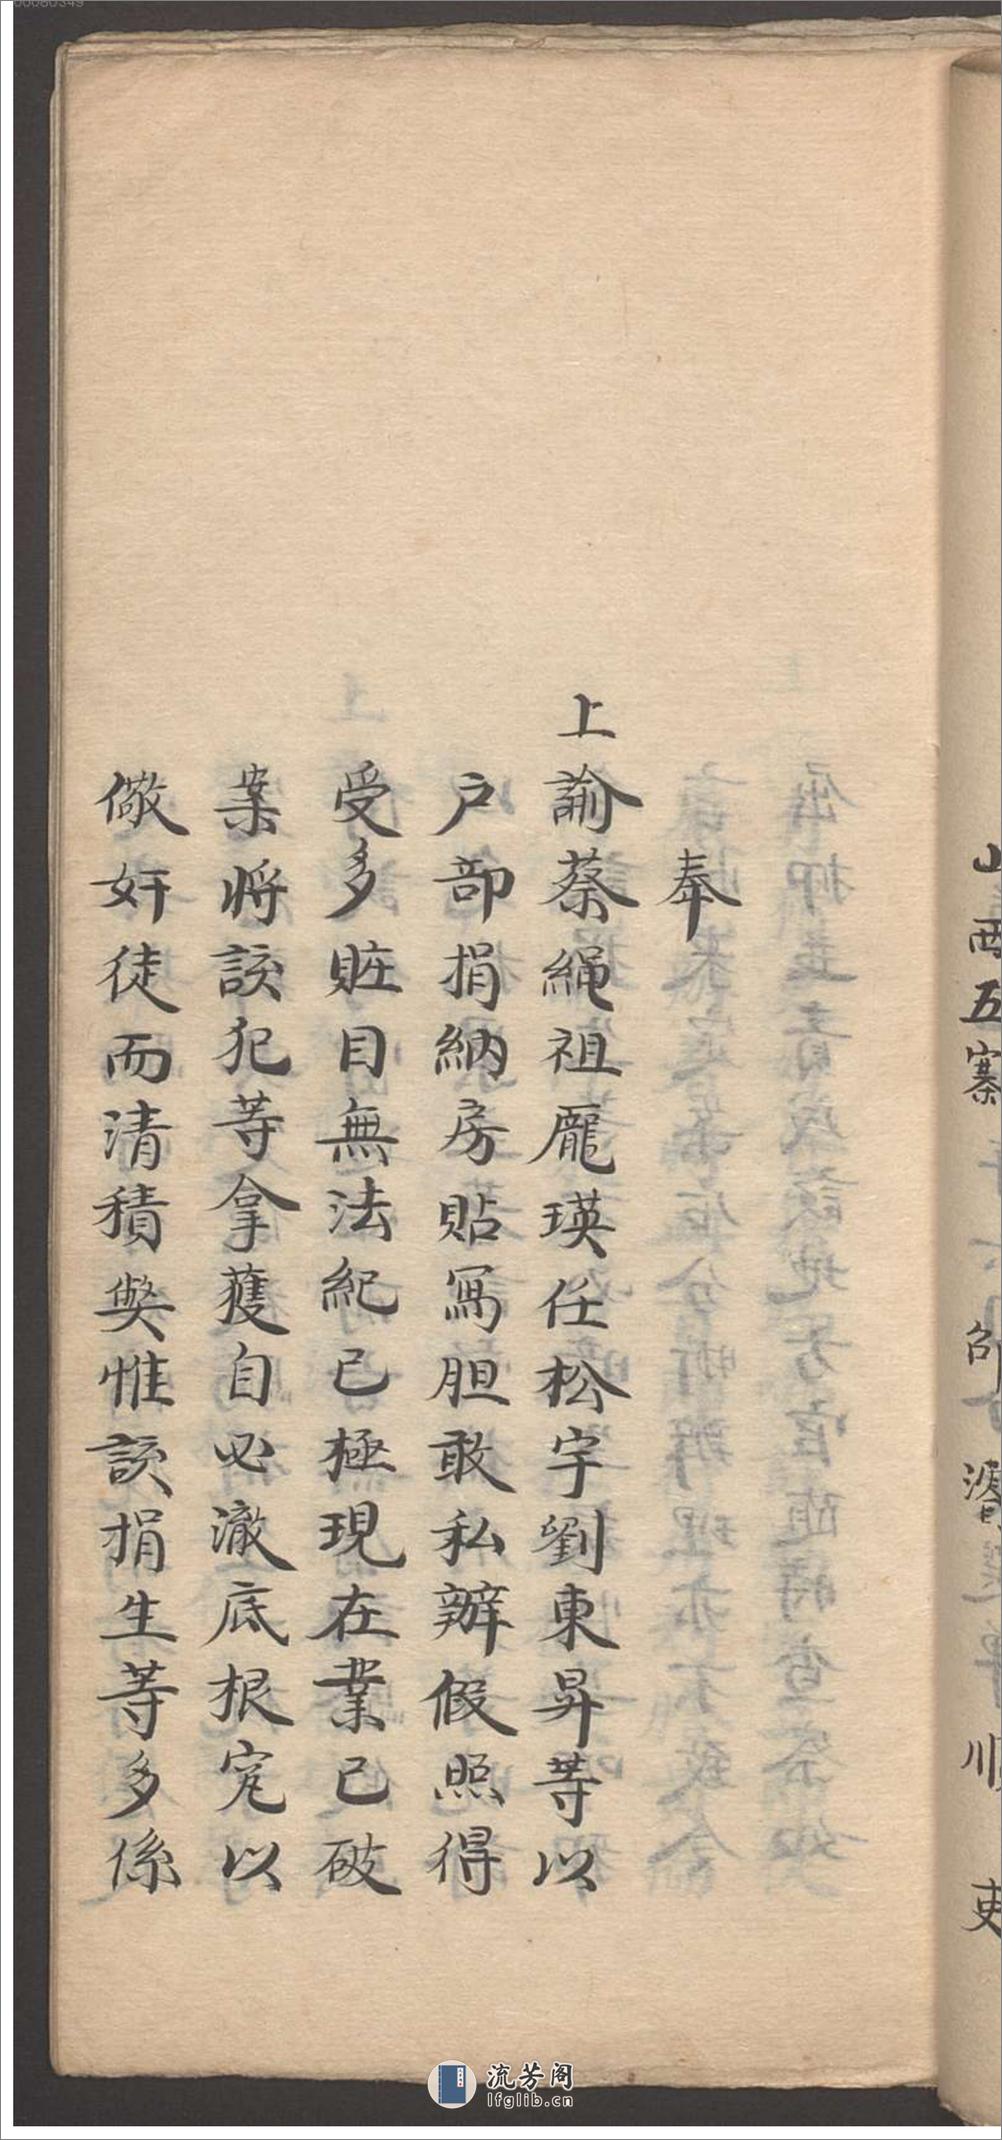 山西五寨
順
吏
奉
上諭蔡繩祖龐瑛任松宇劉東昇等以
户部捐納房貼寫胆敢私辦假照得
受多賍目無法紀已極現在業已破
案將該犯等拿獲自必澈底根究以
儆奸徒而清積獘惟該捐生等多係
流芳阁
lfglib.cn
00080349